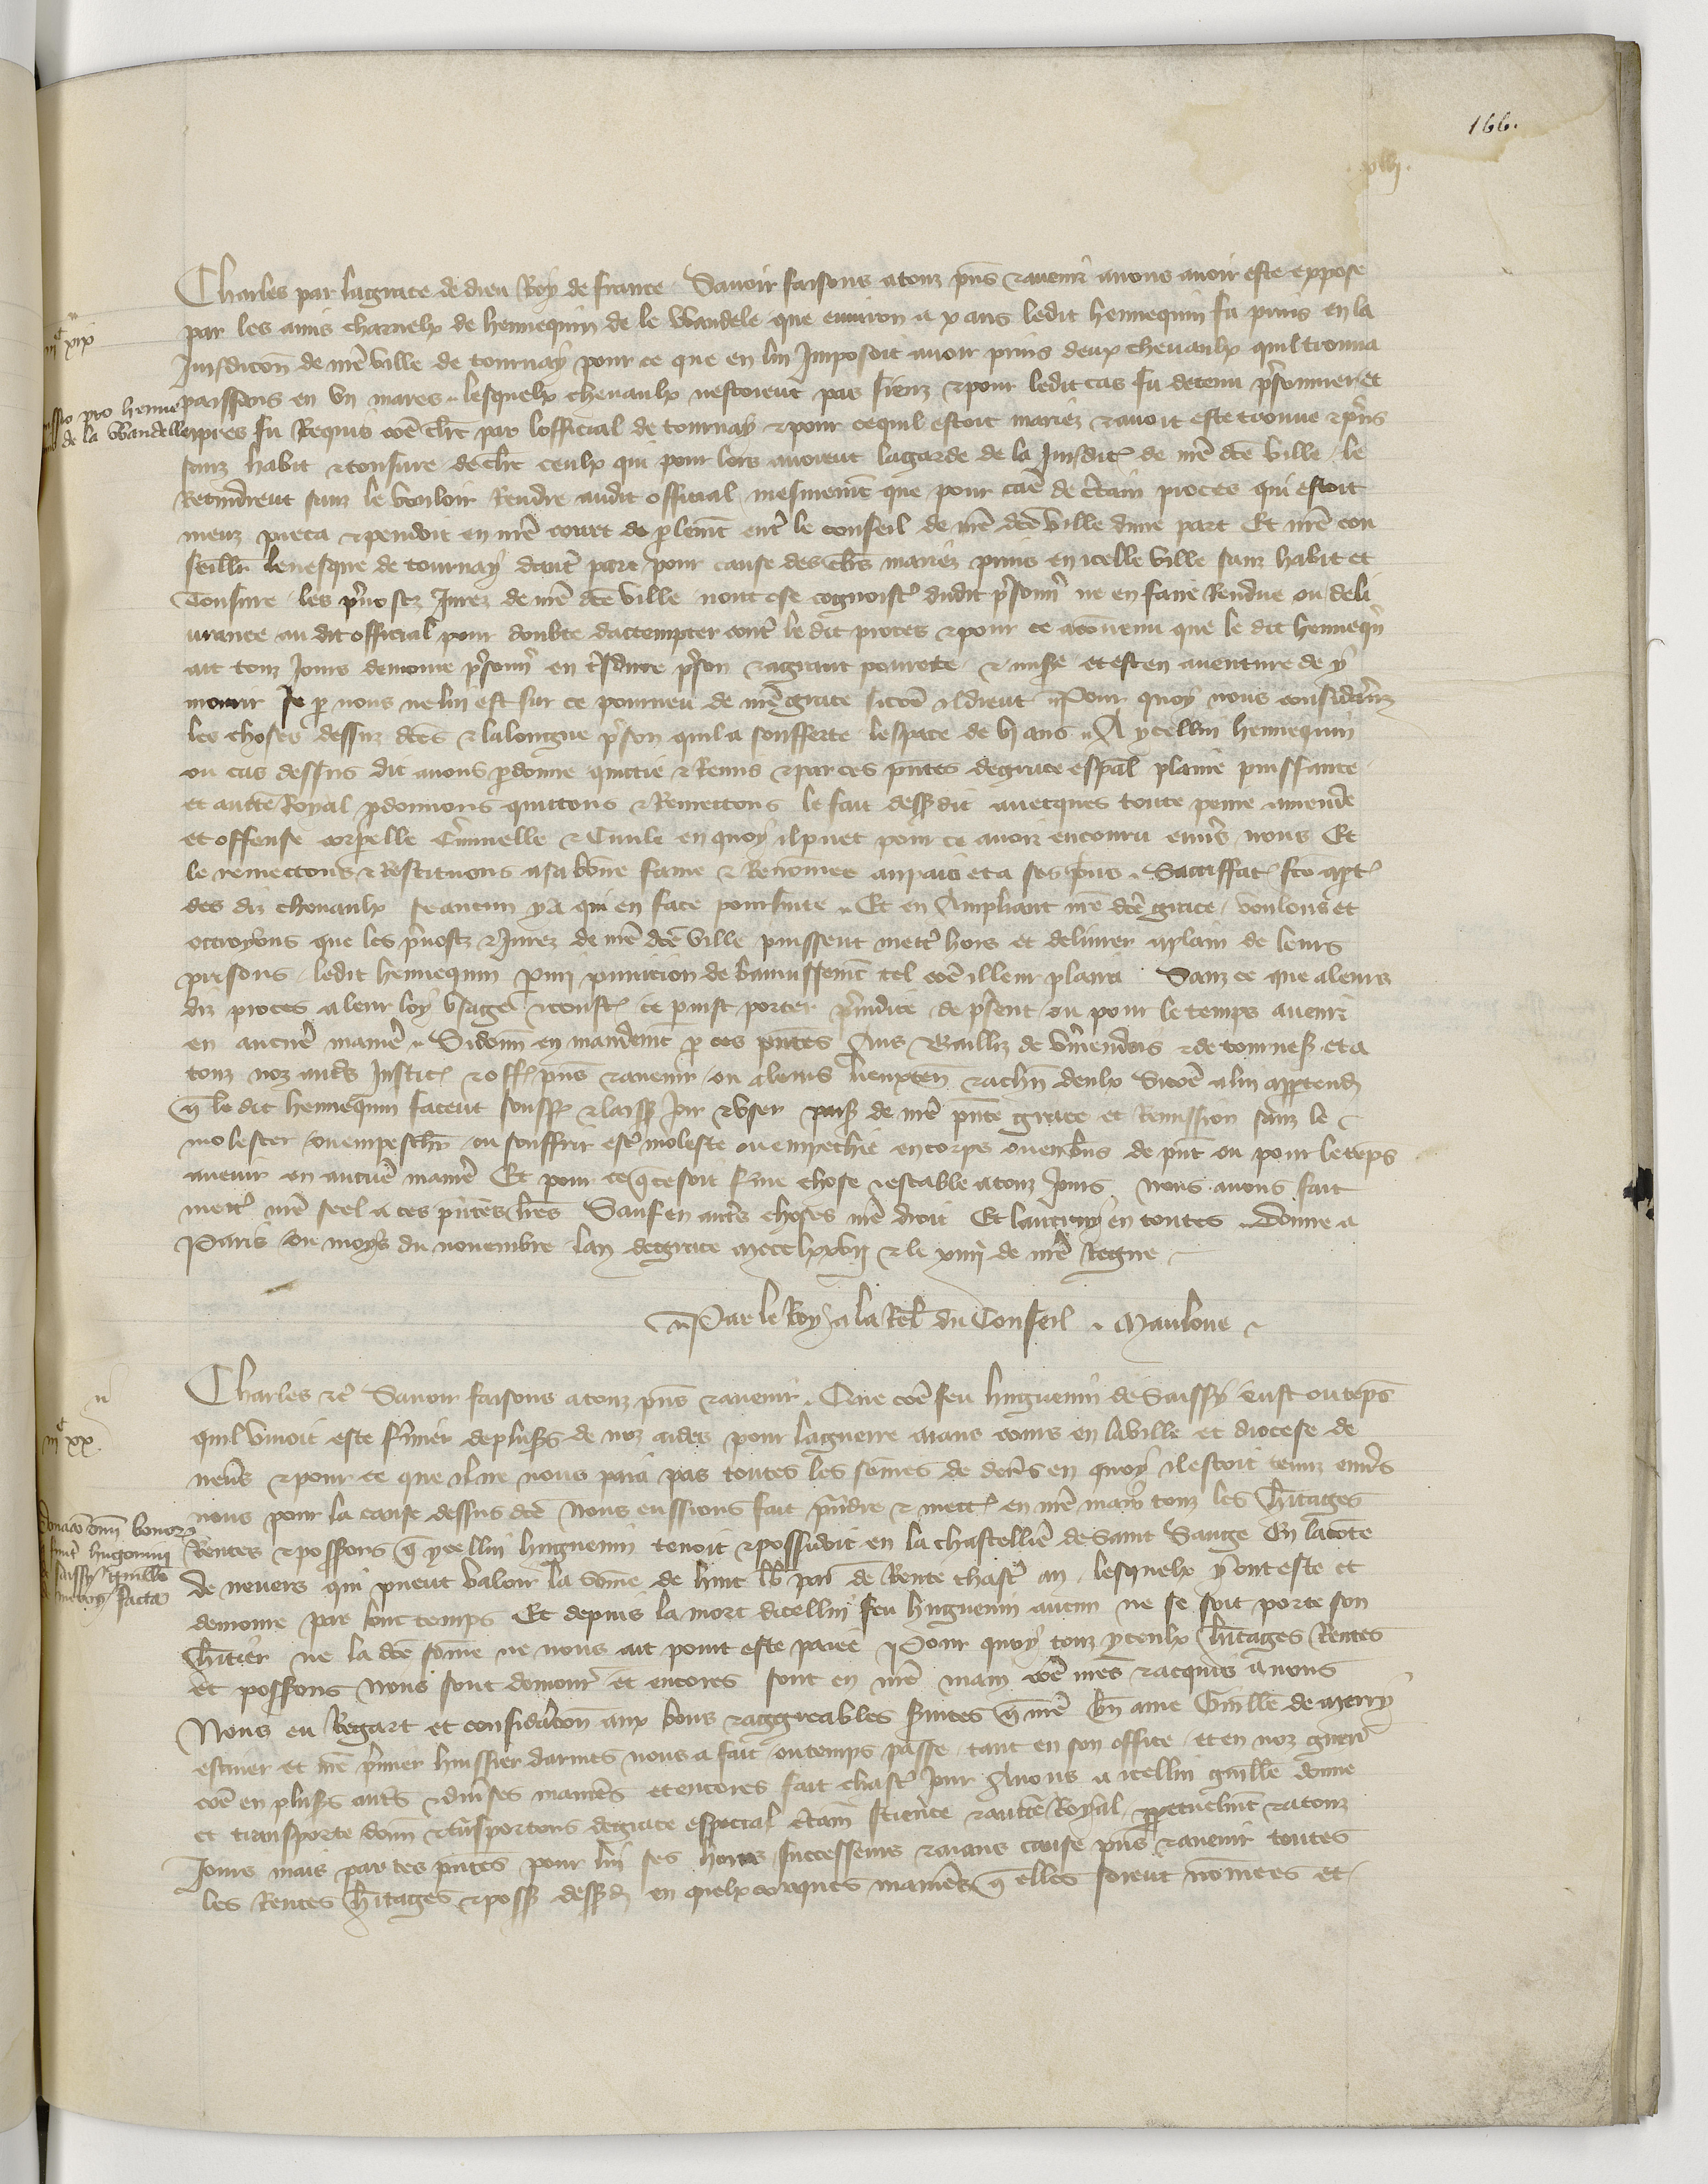 166.
Charles par la grace de dieu Roy de france Savoir faisons a touz pñs et avenir avons avoir este expose
par les amis charnelx de hennequin de le Wandele que environ a x ans ledit hennequin fu prins en la
Jurisdicoñ de nrẽ ville de tournay pour ce que en lui Imposoit avoir prins deux chevaulx quil trouva
paissans en un mares lesquelx chevaulx nestoient pas siens et pour ledit cas fu detenu prisonnier et
apres fu Requis cõe clrc par lofficial de tournay et pour ce quil estoit mariez et avoit este trouve et prins
sanz habit et tonsure de clrc ceulx qui pour lors avoient la garde de la Jurisdic de nrẽ dcẽ ville le
Retindrent sanz le vouloir Rendre audit official mesmemt que pour cãe de ctain proces qui estoit
meuz pieca et pendoit en nrẽ court de plemt entr le conseil de nrẽ dcẽ ville dune part Et nrẽ con
seillr levesque de tournay dautr part pour cause des clrs mariez prins en icelle ville sanz habit et
Tonsure les prvostz Jurez de nrẽ dcẽ ville nont ose cognoistr dudit prisonnr ne en faire Rendue ou deli
vrance au dit official pour doubte dattempter contr le dit proces et pour ce a convenu que le dit henneqn
ait touz Jours demoure prisonnr en tresdure prison et a grant povrete et misere et est en aventure de y
mourir se p nous ne lui est sur ce pourveu de nrẽ grace sicõe il dient Pour quoy nous considerans
les choses dessuz dcẽs et la longue prison quil a soufferte lespace de vj ans A ycellui hennequin
ou cas dessus dit avons pdonne quictie et Remis et par ces pñtes de grace espal plaine puissance
et auctẽ Royal pdonnons quictons et Remettons le fait dessdit avecques toute peine amende
et offense corpelle Criminelle et Civile en quoy il puet pour ce avoir encouru envrs nous Et
le remettons et Restituons a sa bonne fame et Renommee au pais et a ses biens Satisffac fce a pt
des diz chevaulx se aucun y a qui en face poursuite Et en Ampliant nrẽ dcẽ grace voulons et
octroyons que les prvostz et Jurez de nrẽ dcẽ ville puissent mettr hors et delivrer a plain de leurs
prisons ledit hennequin pmi punicion de bannissemt tel cõe il leur plaira Sanz ce que a leurs
diz proces a leur loy usage et coust ce puist porter prjudice de present ou pour le temps avenir
en aucune manrẽ Si donñ en mandemt p ces pñtes Aus Bailliz de Vermendois et de tournes et a
touz noz autrs Justic et off pñs et avenir ou a leurs lieuxten et a chñ deulx sicõe a lui apptend
q le dit hennequin facent souff et laiss Joir et user paisb de nrẽ pñte grace et Remission sanz le
molester ou empeschr ou souffrir estr moleste ou empechie en corps ou en biens de pñt ou pour le temps
avenir en aucune manrẽ Et pour ce q ce soit ferme chose et estable a touz Jours nous avons fait
mettr nrẽ seel a ces pñtes lrẽs Sauf en autrs choses nrẽ droit Et lautruy en toutes Donne a
Paris ou moys de novembre lan de grace mccclxxvij et le xiiij de nrẽ Regne
Par le Roy a la Rel du Conseil Mauloue
Charles etc Savoir faisons a touz pñs et avenir Que cõe feu huguenin de Saissy eust ou teps
quil vivoit este fermier de plusrs de noz aides pour la guerre aians cours en la ville et diocese de
nevrs et pour ce que il ne nous paia pas toutes les sommes de denrs en quoy il estoit tenuz envrs
nous pour la cause dessus dcẽ Nous eussions fait prendre et mettr en nrẽ main touz les heritages
Rentes et possons q ycellui huguenin tenoit et possidoit en la chastellie de Saint Sauge En la contẽ
de nevers qui puent valoir la somme de huit lb par de Rente chascun an lesquelx y ont este et
demoure par lonc temps Et depuis la mort dicellui feu huguenin aucun ne se soit porte son
heritier ne la dcẽ somme ne nous ait point este paiee Pour quoy touz yceulx heritages Rentes
et possons nous sont demour et encores sont en nrẽ main cõe nres et acquis a nous
Nous eu Regart et consideracon aux bons et aggreables services q nrẽ bñ ame Guille de merry
escuier et nrẽ prmier huissier darmes nous a fait ou temps passe tant en son office et en noz guerr
cõe en plusrs autrs et diverses manrẽs et encores fait chasc Jour Avons a icellui guille donne
et transporte donñ et transportons de grace especial ctaine science et auctẽ Royal ppetuelmt et a touz
Jours mais par ces pñtes pour lui ses hoirs successeurs et aians cause pñs et avenir toutes
les Rentes heritages et poss dessd en quelxconques manrẽs q elles soient nommees et
iijc xix
pro henne
de la Wandelle
iijc xx
bonor
hugonini
saissy guille
facta